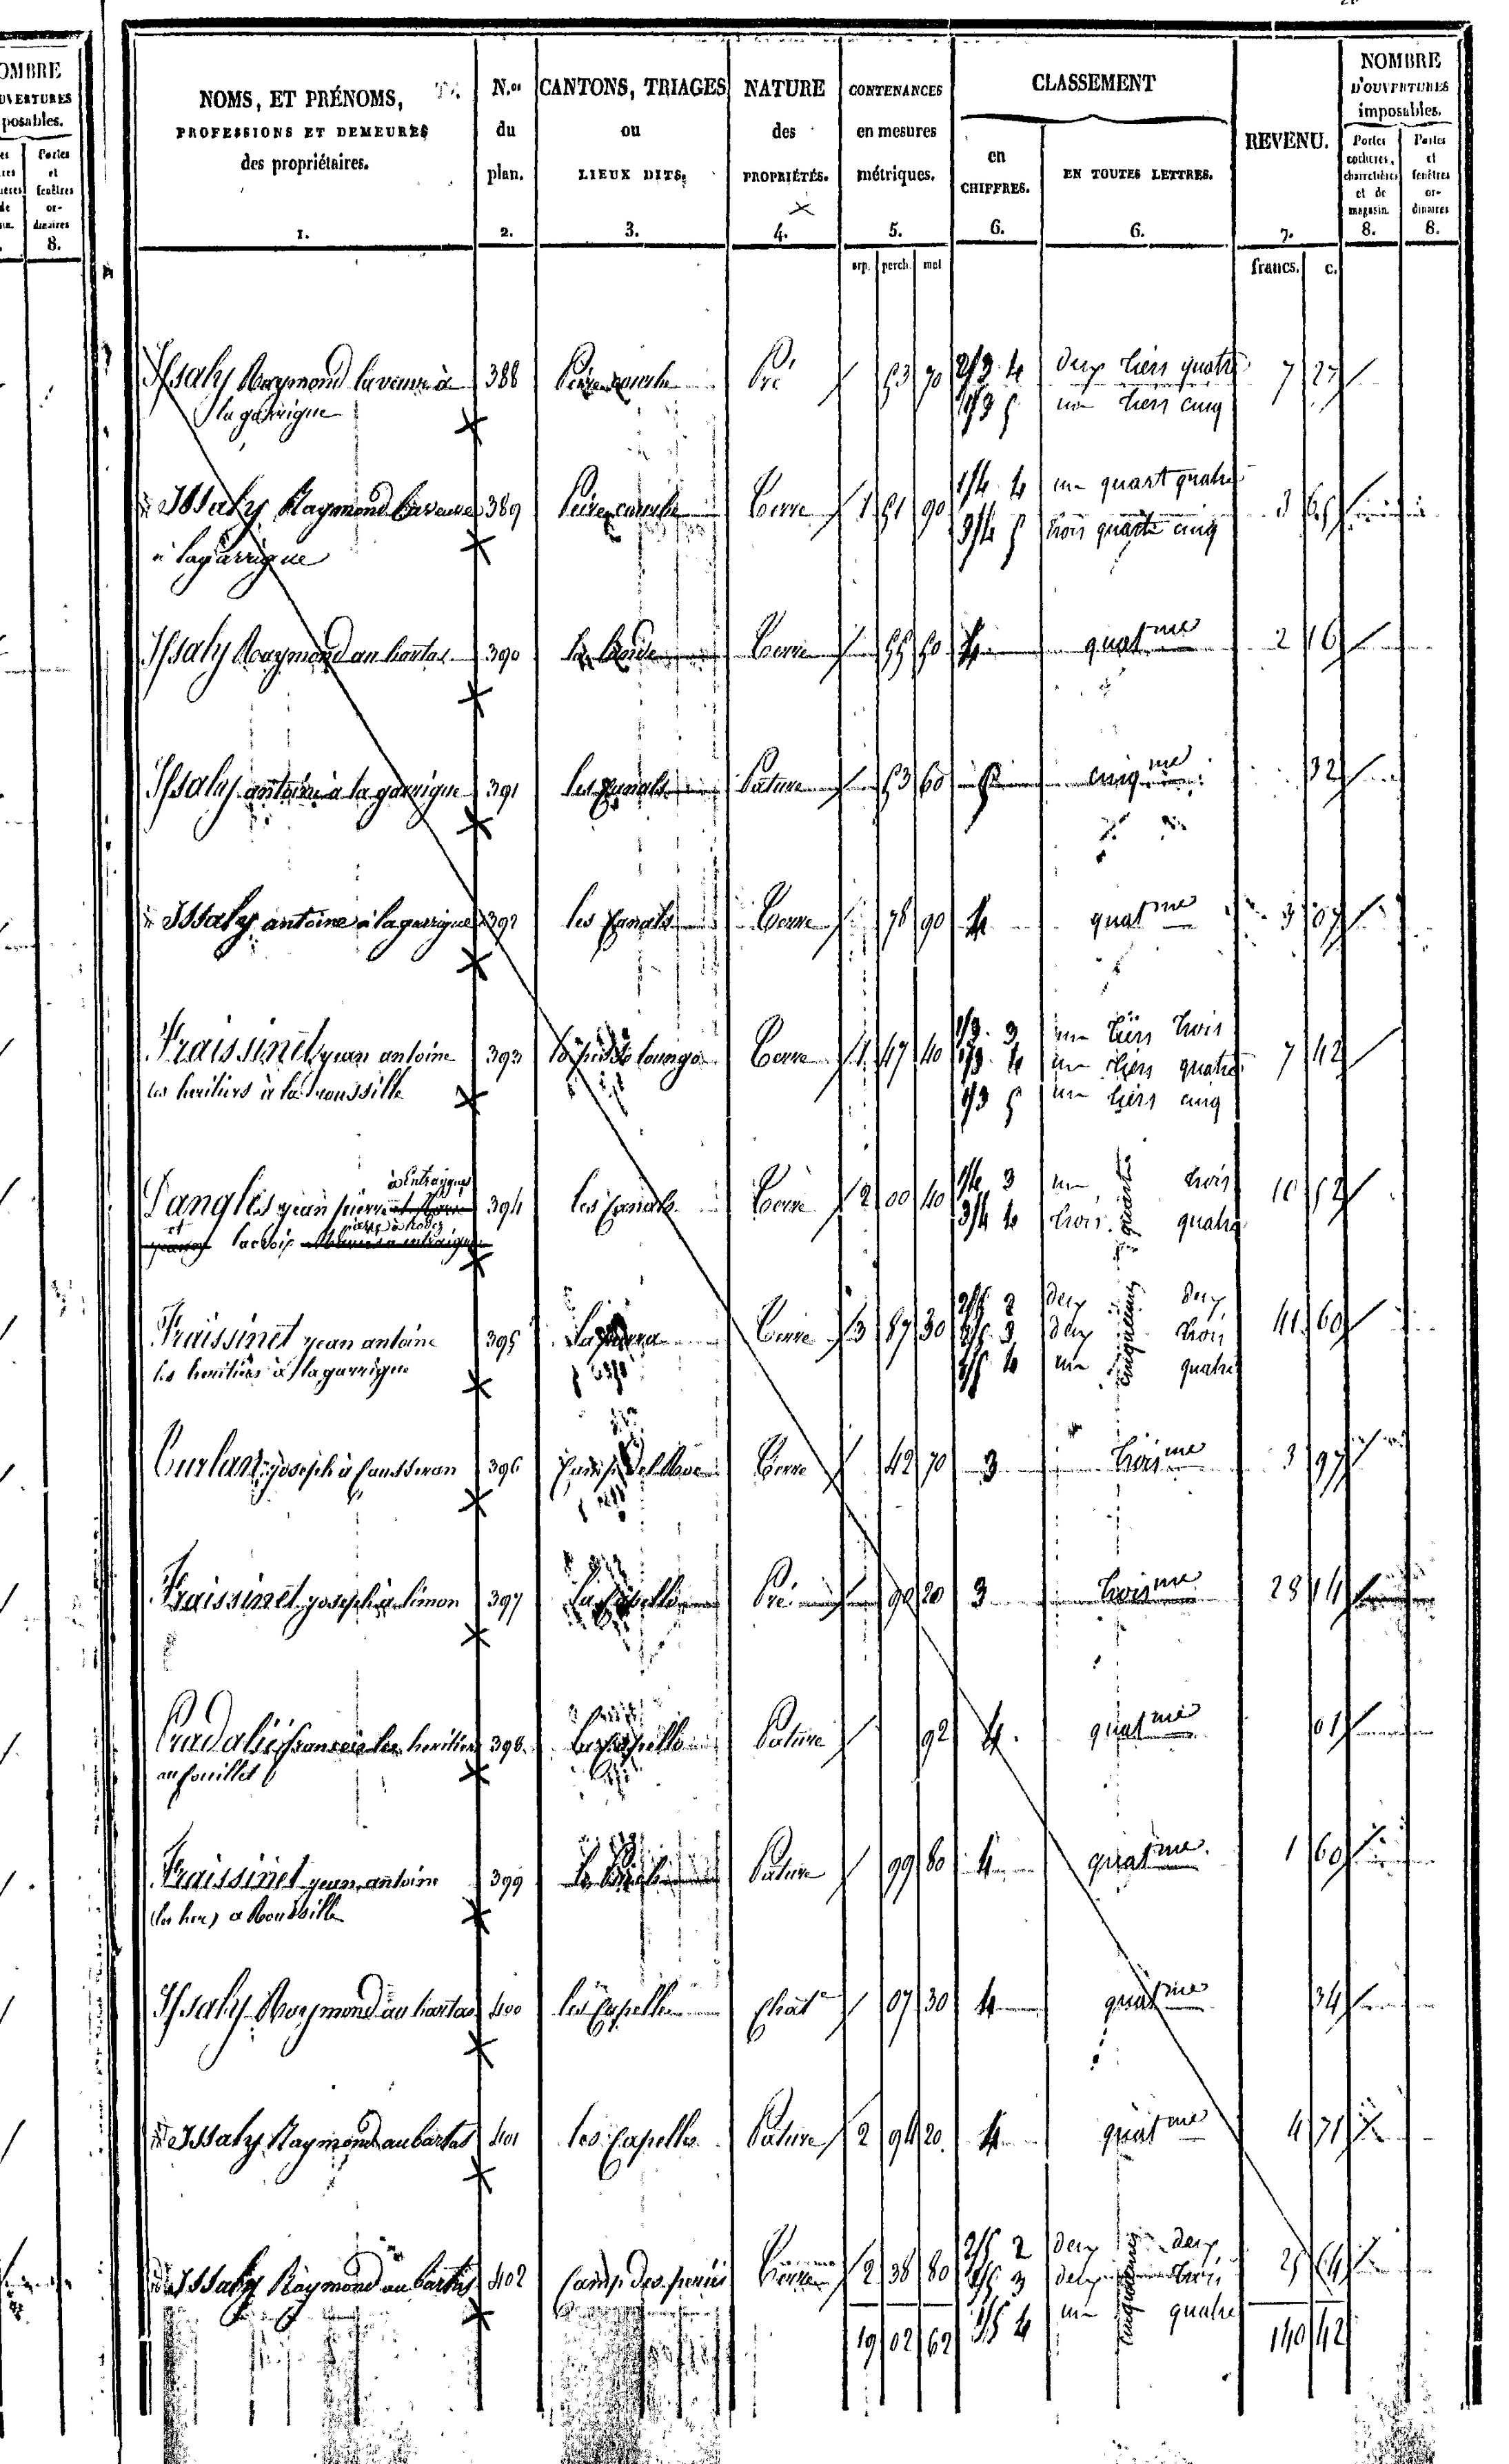 OMBRE
UVERTURES
posables.
Portes
et
fenêtres
or-
dinaires
8.
NOMS, ET PRÉNOMS, PROFESSIONS ET DEMEURES des propriétaires. 1.
N.os du plan. 2.
CANTONS, TRIAGES ou LIEUX DITS. 3.
NATURE des PROPRIÉTÉS. 4.
CONTENANCES en mesures métriques. 5.
CLASSEMENT
en CHIFFRES. 6.
EN TOUTES LETTRES. 6.
REVENU. 7.
NOMBRE D'OUVERTURES imposables.
Portes cochères, charretières et de magasin. 8.
Portes et fenêtres or- dinaires 8.
arp. perch. met francs. c.
Issaly Raymond la veuve à 388 Pré 53 70 2/3 4 deux tiers quatre 7 27
la garrigue 1/3 5 un tiers cinq
Issaly Raymond la veuve 389 Terre 1 51 90 1/4 4 un quart quatre 3 65
à lagarrigue 3/4 5 trois quarts cinq
Issaly Raymond au bartas 390 Terre 55 50 4 quatme 2 16
Issaly antoine à la garrigue 391 les Canals Pature 53 60 5 cinqme 32
Issaly antoine à lagarrigue 392 les Canals Terre 78 90 4 quatme 3 07
Fraissinet jean antoine 393 Terre 1 47 40 1/3 3 un tiers trois 7 42
les heritiers à la Roussille 1/3 4 un tiers quatre
1/3 5 un tiers cinq
à Entraygues
Danglés jean pierre 394 les Canals Terre 2 00 40 1/4 3 un quart trois 10 52
et pierre à Rodez 3/4 4 trois quarts quatre
Fraissinet jean antoine 395 Terre 3 87 30 2/5 2 deux cinquiemes deux 41 60
les heritiers à lagarrigue 2/5 3 deux trois
1/5 4 un quatre
joseph à 396 Terre 42 70 3 troisme 3 97
Fraissinet joseph à limon 397 la Capelle Pré 90 20 3 troisme 28 14
Pradalié francois les heritiers 398 la Capelle Pature 92 4 quatme 01
au fouillet
Fraissinet jean antoine 399 Pature 99 80 4 quatme 1 60
(les her) à Roussille
Issaly Raymond au bartas 400 les Capelles Chate 07 30 4 quatme 34
Issaly Raymond au bartas 401 les Capelles Pature 2 94 20 4 quatme 4 71
Issaly Raymond au bartas 402 Camp des Terre 2 38 80 2/5 2 deux cinquiemes deux 25 64
2/5 3 deux trois
1/5 4 un quatre
19 02 62 140 42